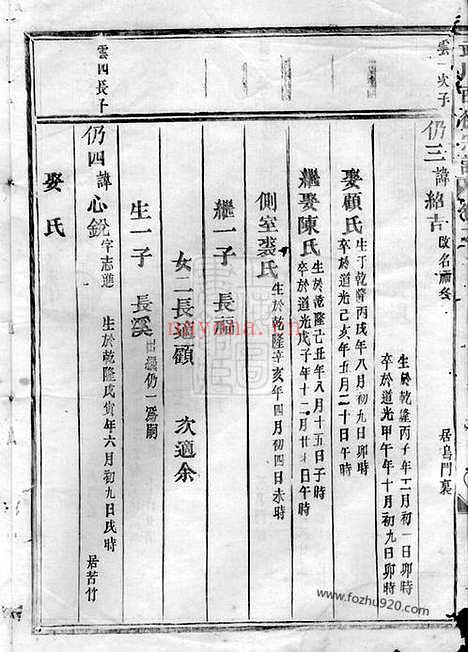 雲一次子
仍三諱紹吉
改名
居烏門裏
生於乾隆丙子年二月初一日卯時
卒於道光甲午年十月初九日卯時
娶顧氏
生于乾隆丙戌年八月初九日卯時
卒於道光己亥年五月二十日午時
繼娶陳氏
生於乾隆己丑年八月十五日子時
卒於道光戊子年十一月廿日午時
側室裘氏
生於乾隆辛亥年四月初四日未時
繼一子 長福
女二長適顧 次適余
生一子 長溪
出繼仍一為嗣
雲四長子
仍四諱心銳
字志進
生於乾隆戊寅年六月初九日戌時
居苦竹
娶氏
nayona.cn
www.fozhu920.com